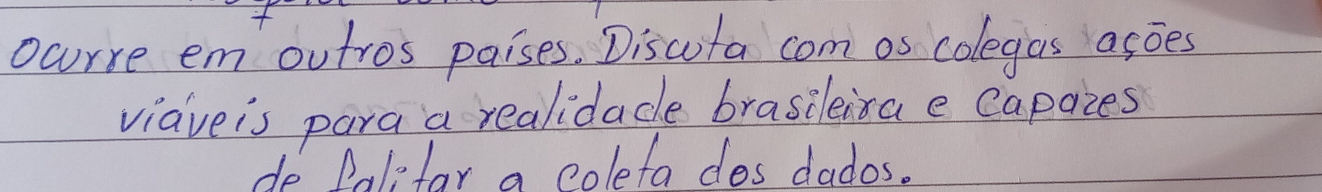 ocurre em outros países. Discuta com os colegas ações
viáveis para a realidade brasileira e capazes
de falitar a coleta dos dados.